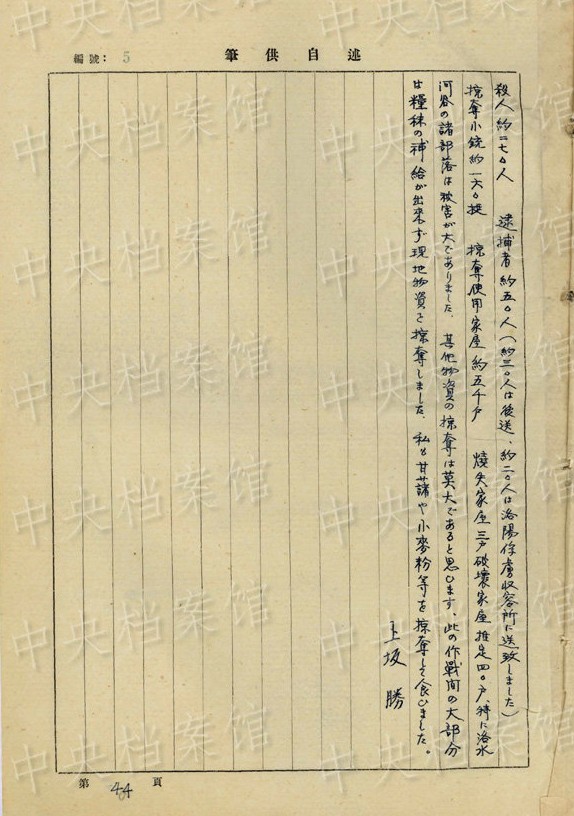 述自供筆
編號: 5
殺人約二七〇人　逮捕者約五〇人(約三〇人は後送、約二〇人は洛陽俘虜収容所に送致しました)
掠奪小銃約一六〇挺　掠奪使用家屋約五千戸　燒失家屋三戸破壞家屋推定四〇戸、特に洛水
河谷の諸部落は被害が大でありました、其他物資の掠奪は莫大であると思ひます、此の作戰間の大部分
は糧秣の補給が出來ず現地物資を掠奪しました、私も甘藷や小麥粉等を掠奪して食ひました。
上坂勝
第 44 頁
中央档案馆